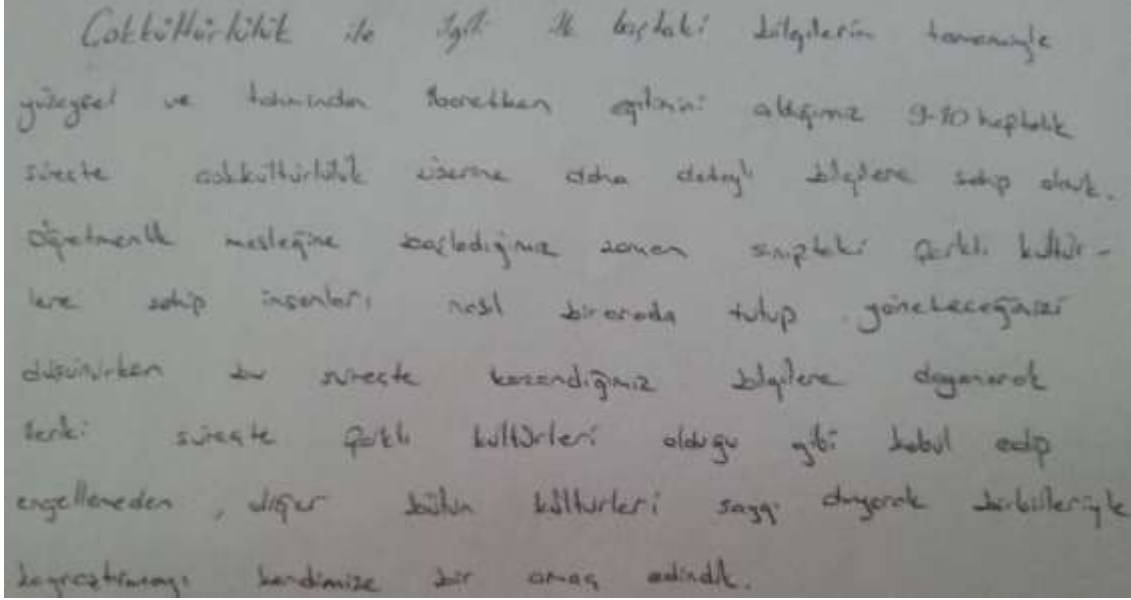 Çokkültürlülük ile ilgili ilk baştaki bilgilerim tamamıyla
yüzeysel ve tahminden ibaretken eğitimini aldığımız 9-10 haftalık
süreçte çokkültürlülük üzerine daha detaylı bilgilere sahip olduk.
Öğretmenlik mesleğine başladığımız zaman sınıftaki farklı kültür-
lere sahip insanları nasıl bir arada tutup yöneteceğimizi
düşünürken bu süreçte kazandığımız bilgilere dayanarak
ileriki süreçte farklı kültürleri olduğu gibi kabul edip
engellemeden, diğer bütün kültürleri saygı duyarak birbirleriyle
kaynaştırmayı kendimize bir amaç edindik.